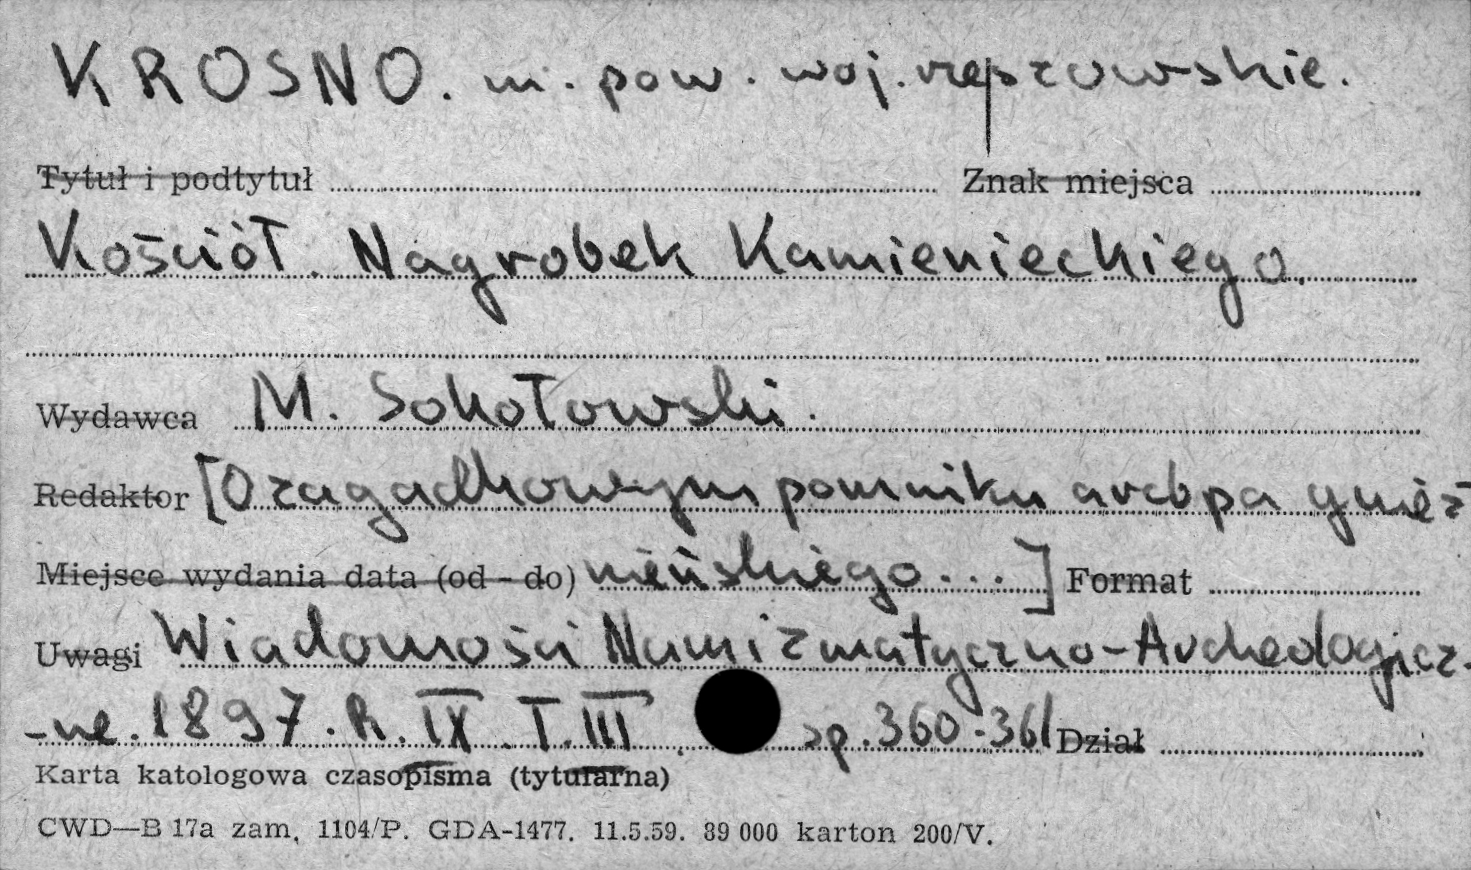 KROSNO. m. pow. woj. rzeszowskie.
Tytuł i podtytuł Znak miejsca
Kościół. Nagrobek Kamienieckiego.
Wydawca M. Sokołowski.
Redaktor [O zagadkowym pomniku arcbpa gnież
Miejsce wydania data (od - do) nieńskiego...] Format
Uwagi Wiadomości Numizmatyczno-Archeologicz-
-ne. 1897. R. IX. T. III. sp. 360-361 Dział
Karta katologowa czasopisma (tytularna)
CWD—B 17a zam, 1104/P. GDA-1477. 11.5.59. 89 000 karton 200/V.